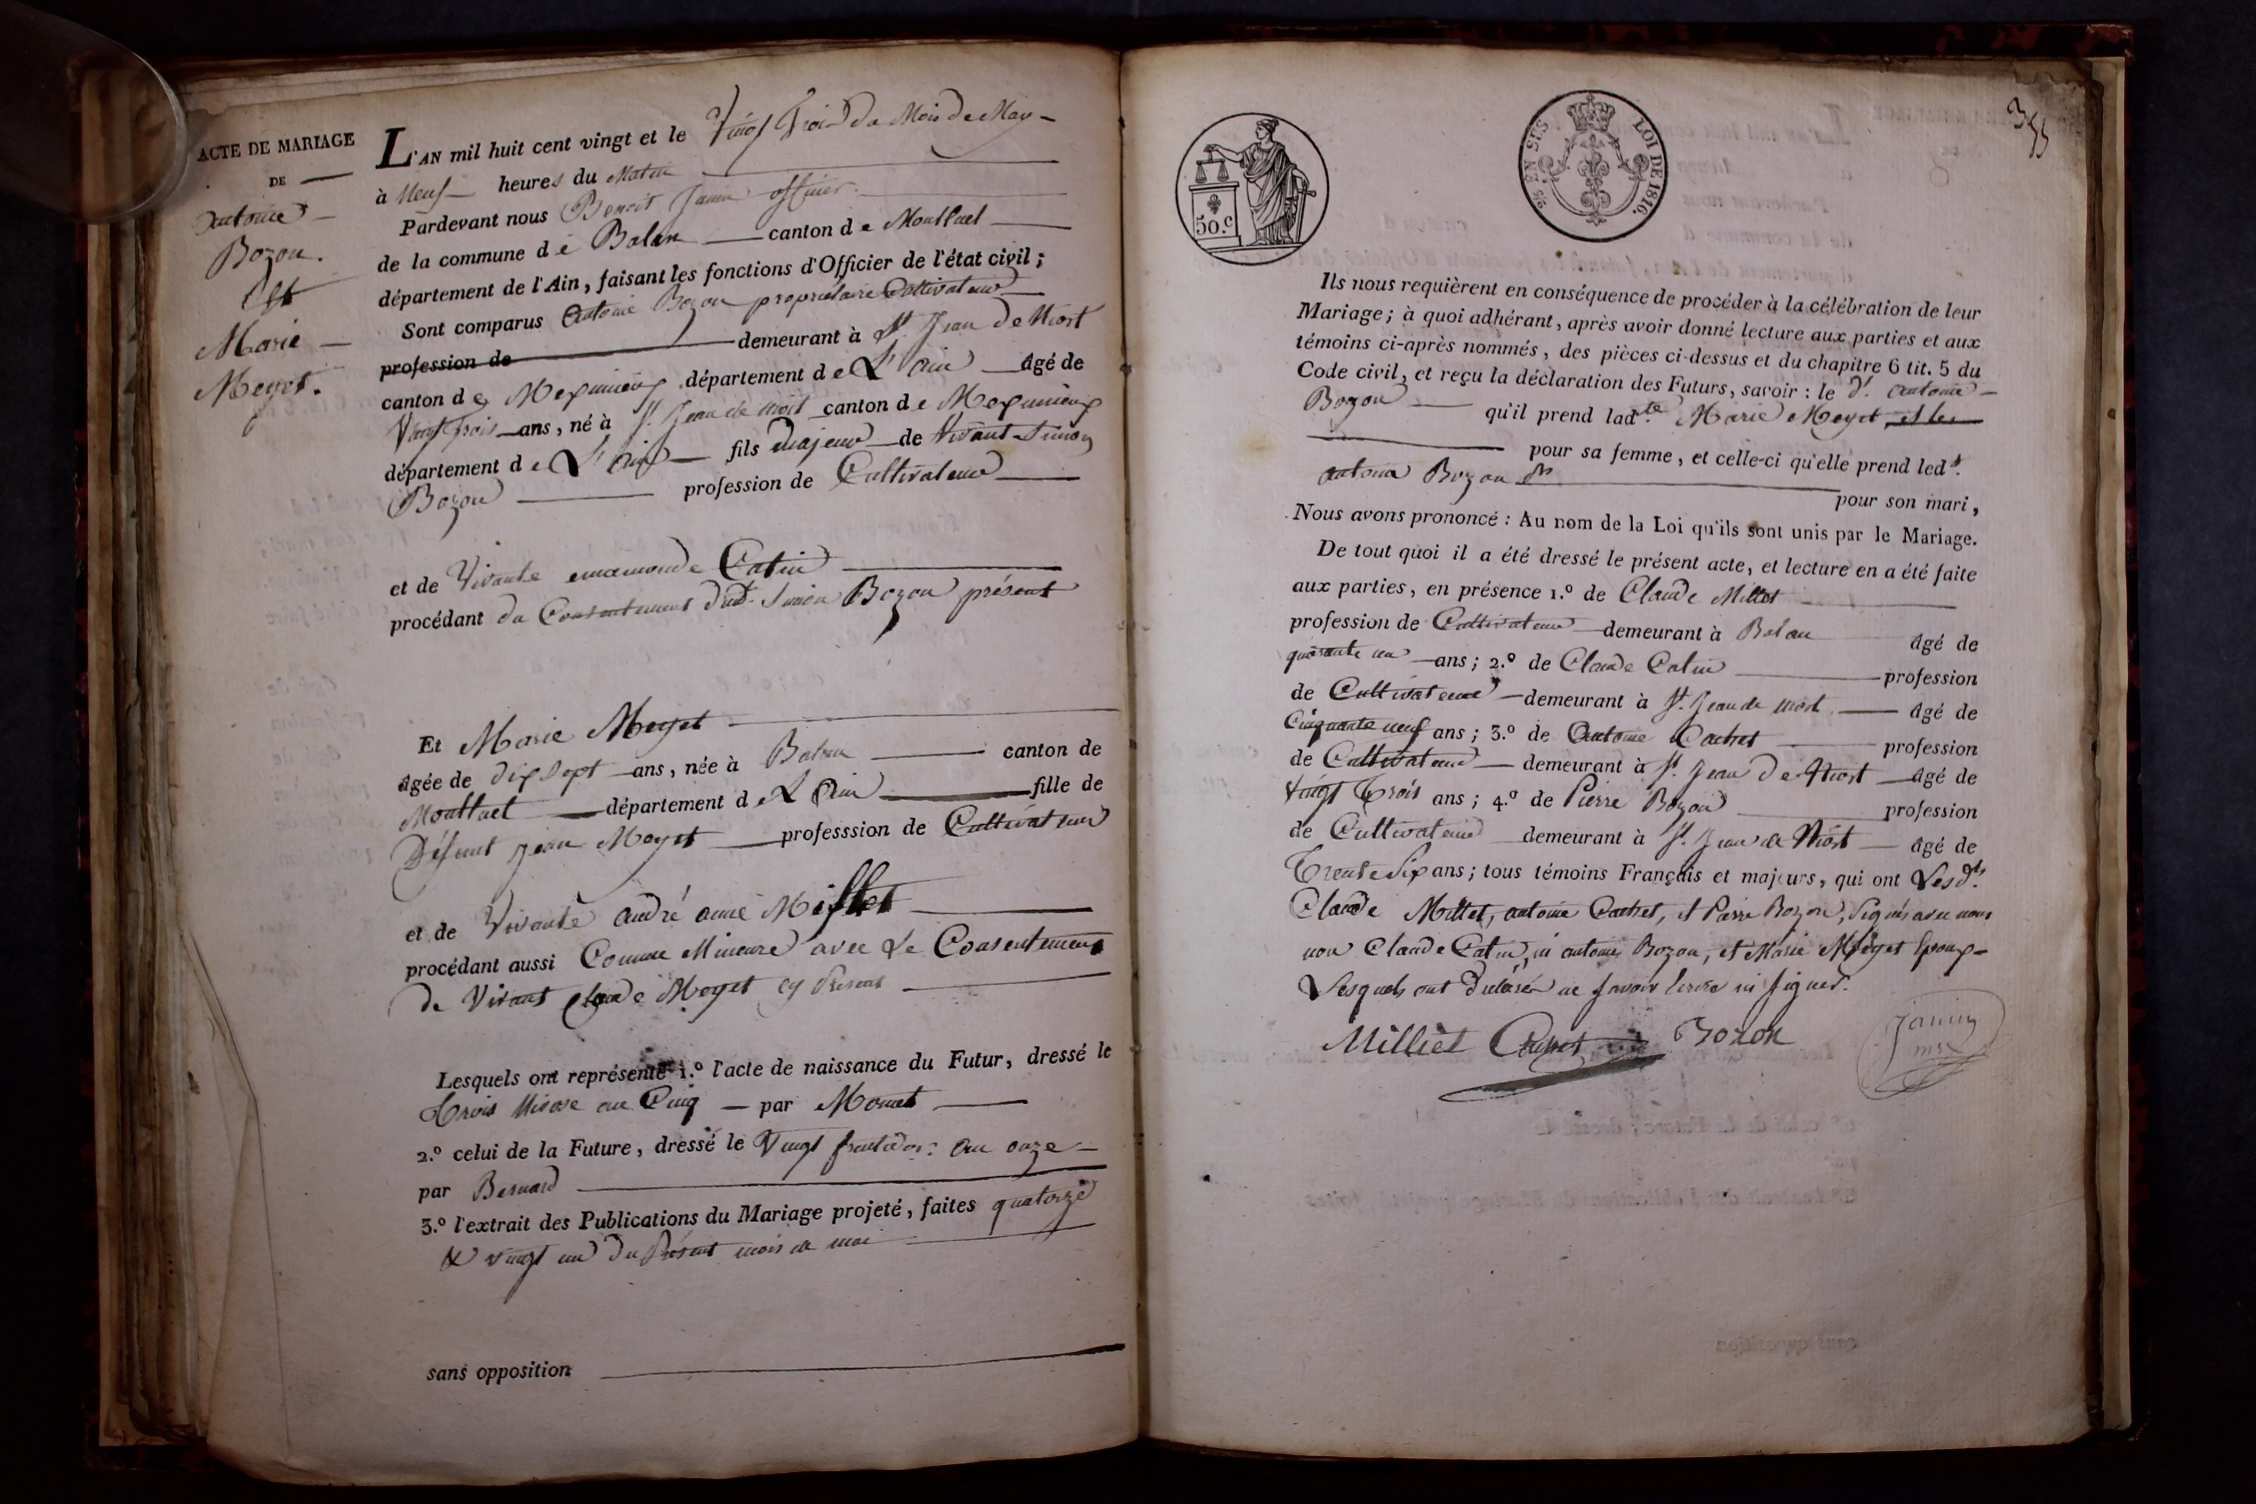 ACTE DE MARIAGE
DE
Antoine
Bozon.
Et
Marie
Meyet.
L'AN mil huit cent vingt et le Vingt Trois du Mois de May
à Neuf heures du Matin
Pardevant nous Benoit Janin officier
de la commune de Balan canton de Montluel
département de l'Ain, faisant les fonctions d'Officier de l'état civil;
Sont comparus Antoine Bozon propriétaire Cultivateur
profession de demeurant à St Jean de Niost
canton de Meximieux département de L'Ain âgé de
Vingt trois ans, né à St Jean de Niost canton de Meximieux
département de L'Ain fils Majeur de Vivant Simon
Bozon profession de Cultivateur
et de Vivante Catin
procédant du Consentement dudt Simon Bozon présent
Et Marie Meyet
âgée de dix sept ans, née à Balan canton de
Montluel département de L'Ain fille de
Défunt Jean Meyet professsion de Cultivateur
et de Vivante André anne
procédant aussi Comme Mineure avec Le Consentement
de Vivant Claude Meyet cy Présent
Lesquels ont représenté 1.º l'acte de naissance du Futur, dressé le
Trois Nivose an Cinq par Monet
2.º celui de la Future, dressé le Vingt fructidor an onze
par Bernard
3.º l'extrait des Publications du Mariage projeté, faites quatorze
& vingt un du Présent mois de mai
sans opposition
355
50.c
25.c EN SUS
LOI DE 1816.
Ils nous requièrent en conséquence de procéder à la célébration de leur
Mariage; à quoi adhérant, après avoir donné lecture aux parties et aux
témoins ci-après nommés, des pièces ci-dessus et du chapitre 6 tit. 5 du
Code civil, et reçu la déclaration des Futurs, savoir: le dt antoine
Bozon qu'il prend ladte Marie Meyet
pour sa femme, et celle-ci qu'elle prend ledt
antoine Bozon
pour son mari,
Nous avons prononcé: Au nom de la Loi qu'ils sont unis par le Mariage.
De tout quoi il a été dressé le présent acte, et lecture en a été faite
aux parties, en présence 1.º de Claude Millet
profession de Cultivateur demeurant à Balan âgé de
quarante un ans; 2.º de Claude Catin profession
de Cultivateur demeurant à St. Jean de Niost âgé de
Cinquante neuf ans; 3.º de Antoine Cachet profession
de Cultivateur demeurant à St. Jean de Niost âgé de
Vingt Trois ans; 4.º de Pierre Bozon profession
de Cultivateur demeurant à St. Jean de Niost âgé de
Trente Six ans; tous témoins Français et majeurs, qui ont Lesdts
Claude Millet, antoine Cachet, et Pierre Bozon, Signés avec nous
non Claude Catin, ni antoine Bozon, et Marie Meyet Epoux
Lesquels ont déclaré ne savoir Ecrire ni signer.
Milliet Cachet Bozon Janin